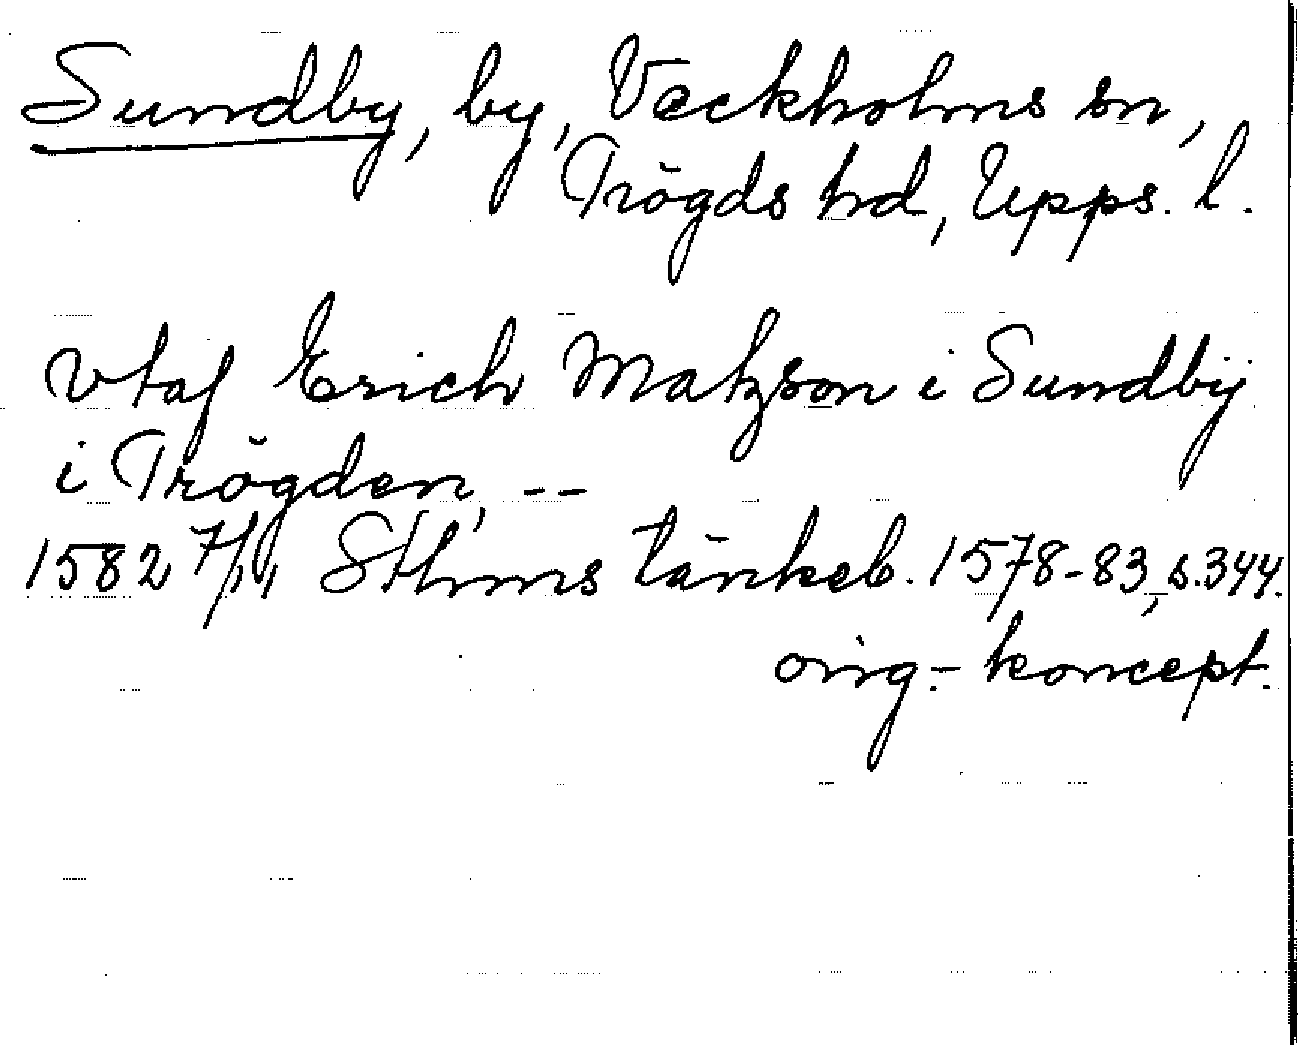 Sundby, by, Veckholms sn,
Trögds hd, Upps. l.
vtaf Erich Matzson i Sundbÿ
i Trögden, --
1582 7/11, Sthms tänkeb. 1578-83, s. 344.
orig.- koncept.